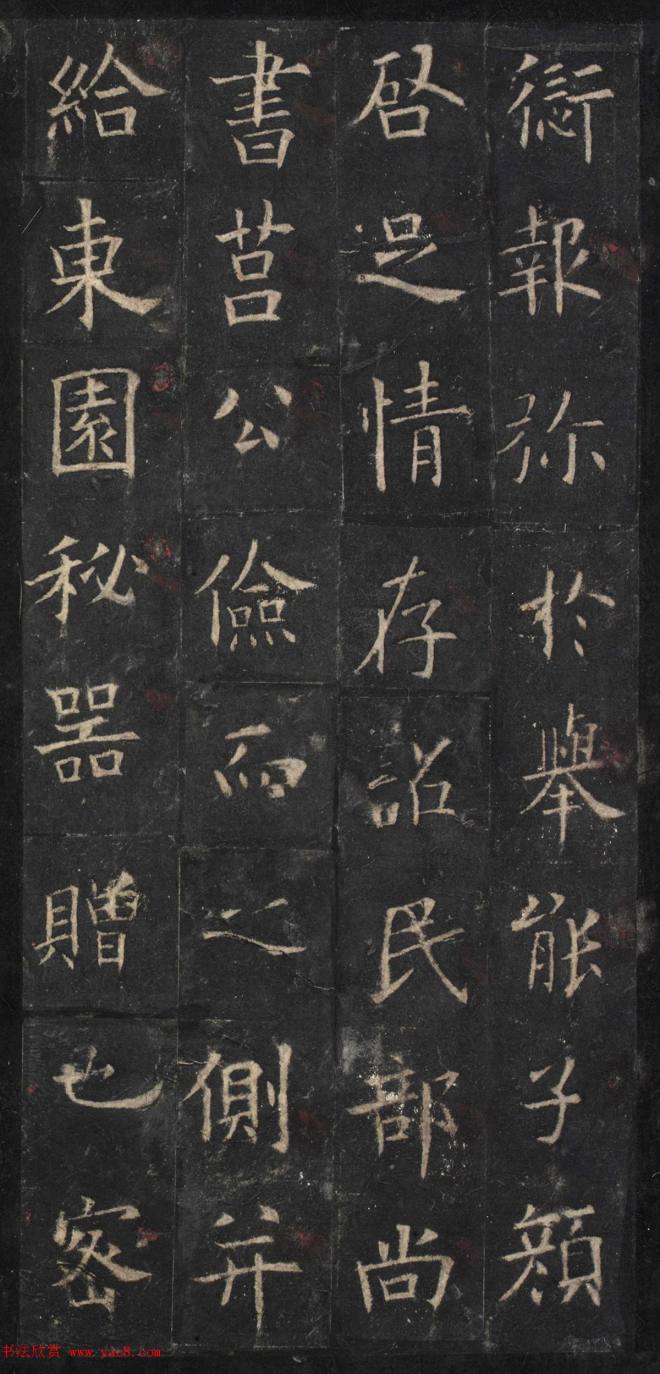 衘報弥於舉能子顔
啓足情存詔民部尚
書莒公儉而之側并
給東園秘器贈也密
书法欣赏 www.yac8.com